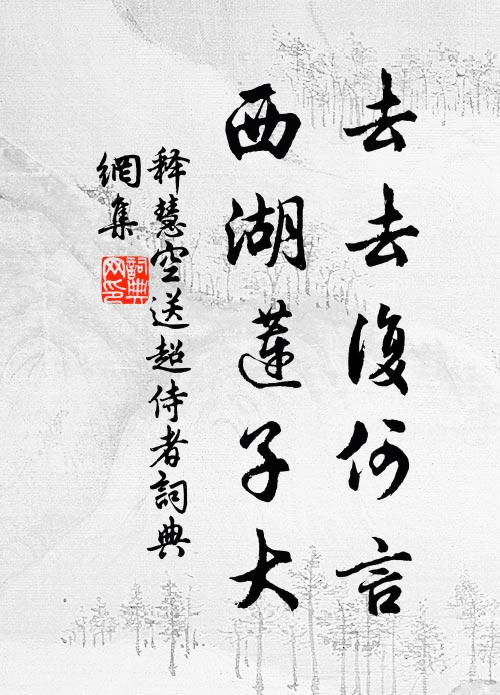 去去復何言
西湖蓮子大
释慧空送超侍者詞典
網集
詞典网印